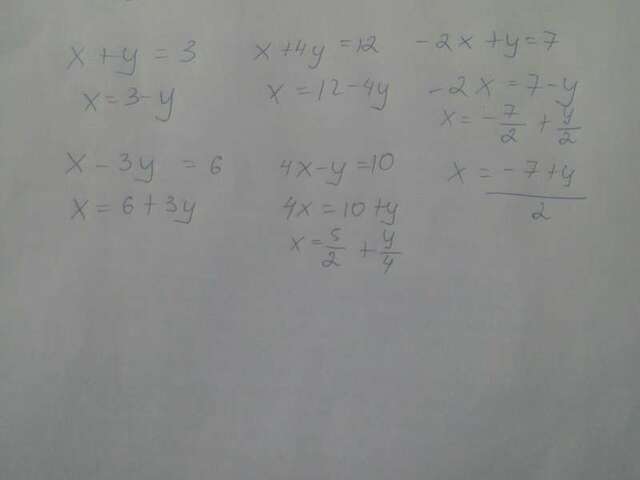 x + y = 3
x = 3 - y
x + 4y = 12
x = 12 - 4y
-2x + y = 7
-2x = 7 - y
x = -7/2 + y/2
x = (-7 + y)/2
x - 3y = 6
x = 6 + 3y
4x - y = 10
4x = 10 + y
x = 5/2 + y/4